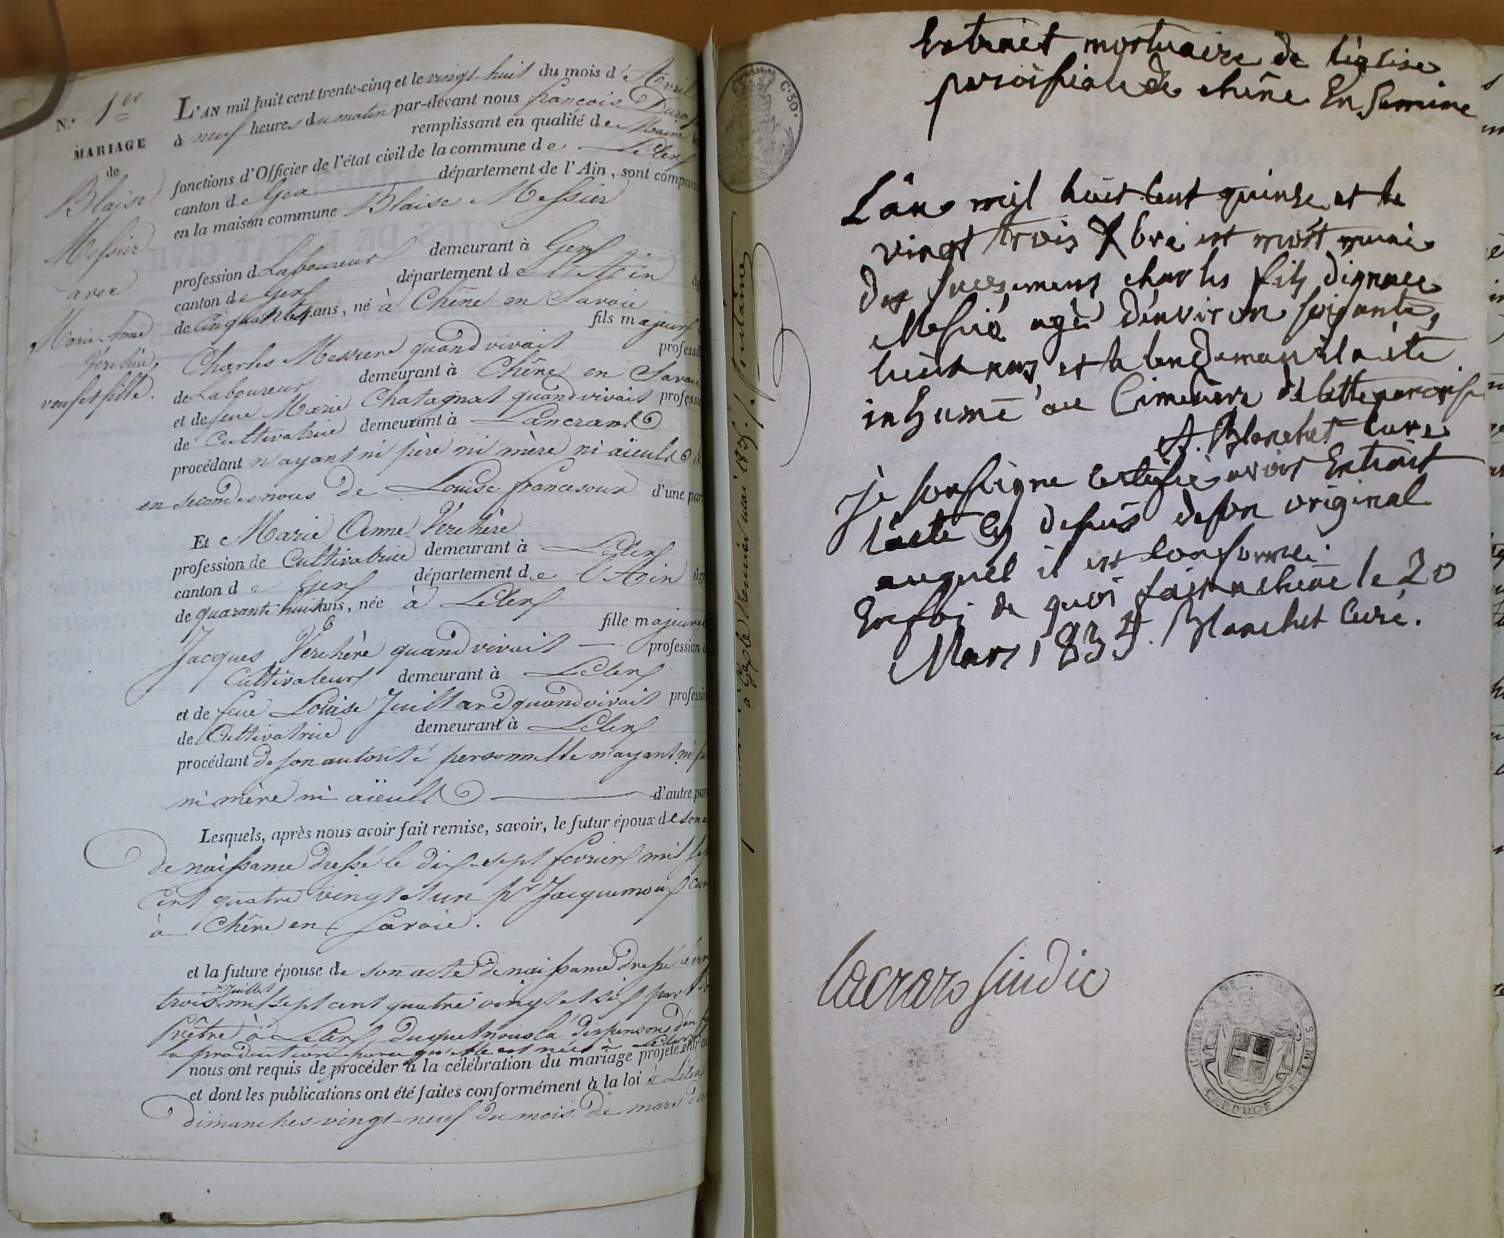 N.º 1er
MARIAGE
de
Blaise
Messier
avec
Marie Anne
Verchère,
veuf et fille.
L'AN mil huit cent trente-cinq et le vingt huit du mois d'Avril
à neuf heures du matin par-devant nous françois Duros
remplissant en qualité de Maire
fonctions d'Officier de l'état civil de la commune de Lélex
canton de Gex département de l'Ain, sont compar
en la maison commune Blaise Messier
profession de Laboureur demeurant à Gex
canton de Gex département de l'Ain
de Cinquante ans, né à Chêne en Savoie
fils majeur
Charles Messiere quand vivait profess
de Laboureur demeurant à Chêne en Savoie
et de feue Marie Chatagnat quand vivait profess
de Cultivatrice demeurant à Lancrans
procédant n'ayant ni père ni mère ni aïeuls
en secondes noces de Louise francesoux d'une par
Et Marie Anne Verchère
profession de Cultivatrice demeurant à Lélex
canton de Gex département de l'Ain âg
de quarante huit ans, née à Lélex
fille majeure
Jacques Verchère quand vivait profession
Cultivateur demeurant à Lélex
et de feue Louise Juilland quand vivait professi
de Cultivatrice demeurant à Lélex
procédant de son autorité personnelle n'ayant ni
ni mère ni aïeuls d'autre par
Lesquels, après nous avoir fait remise, savoir, le futur époux de son
de naissance dressé le dix-sept fevrier mil sep
Cent quatre vingt et un pr Jacquemoux
à Chêne en Savoie.
et la future épouse de son acte de naissance dressé le
trois Juillet mil sept cent quatre vingt et six par
Prêtre à Lélex duquel nous la dispensons d'en
la production parce qu'elle est née à Lélex
nous ont requis de procéder à la célébration du mariage projeté entr
et dont les publications ont été faites conformément à la loi à Lélex
dimanches vingt-neuf du mois de mars
C. 30.
à Gex le premier mai 1835.
Extrait mortuaire de l'église
paroissiale de chêne En Semine
L'an mil huit cent quinze et le
vingt trois Xbre est mort muni
des sacremens charles fils d'ignace
Messié agé d'environ soisante,
huit ans et le lendemain il a été
inhumé au Cimetière de cette paroisse
A. Blanchet curé
je soussigne certifie avoir Extrait
l'acte cy dessus de son original
auquel il est conforme.
En foi de quoi fait a chêne le 20
Mars 1835. Blanchet Curé.
Lacrars Sindic